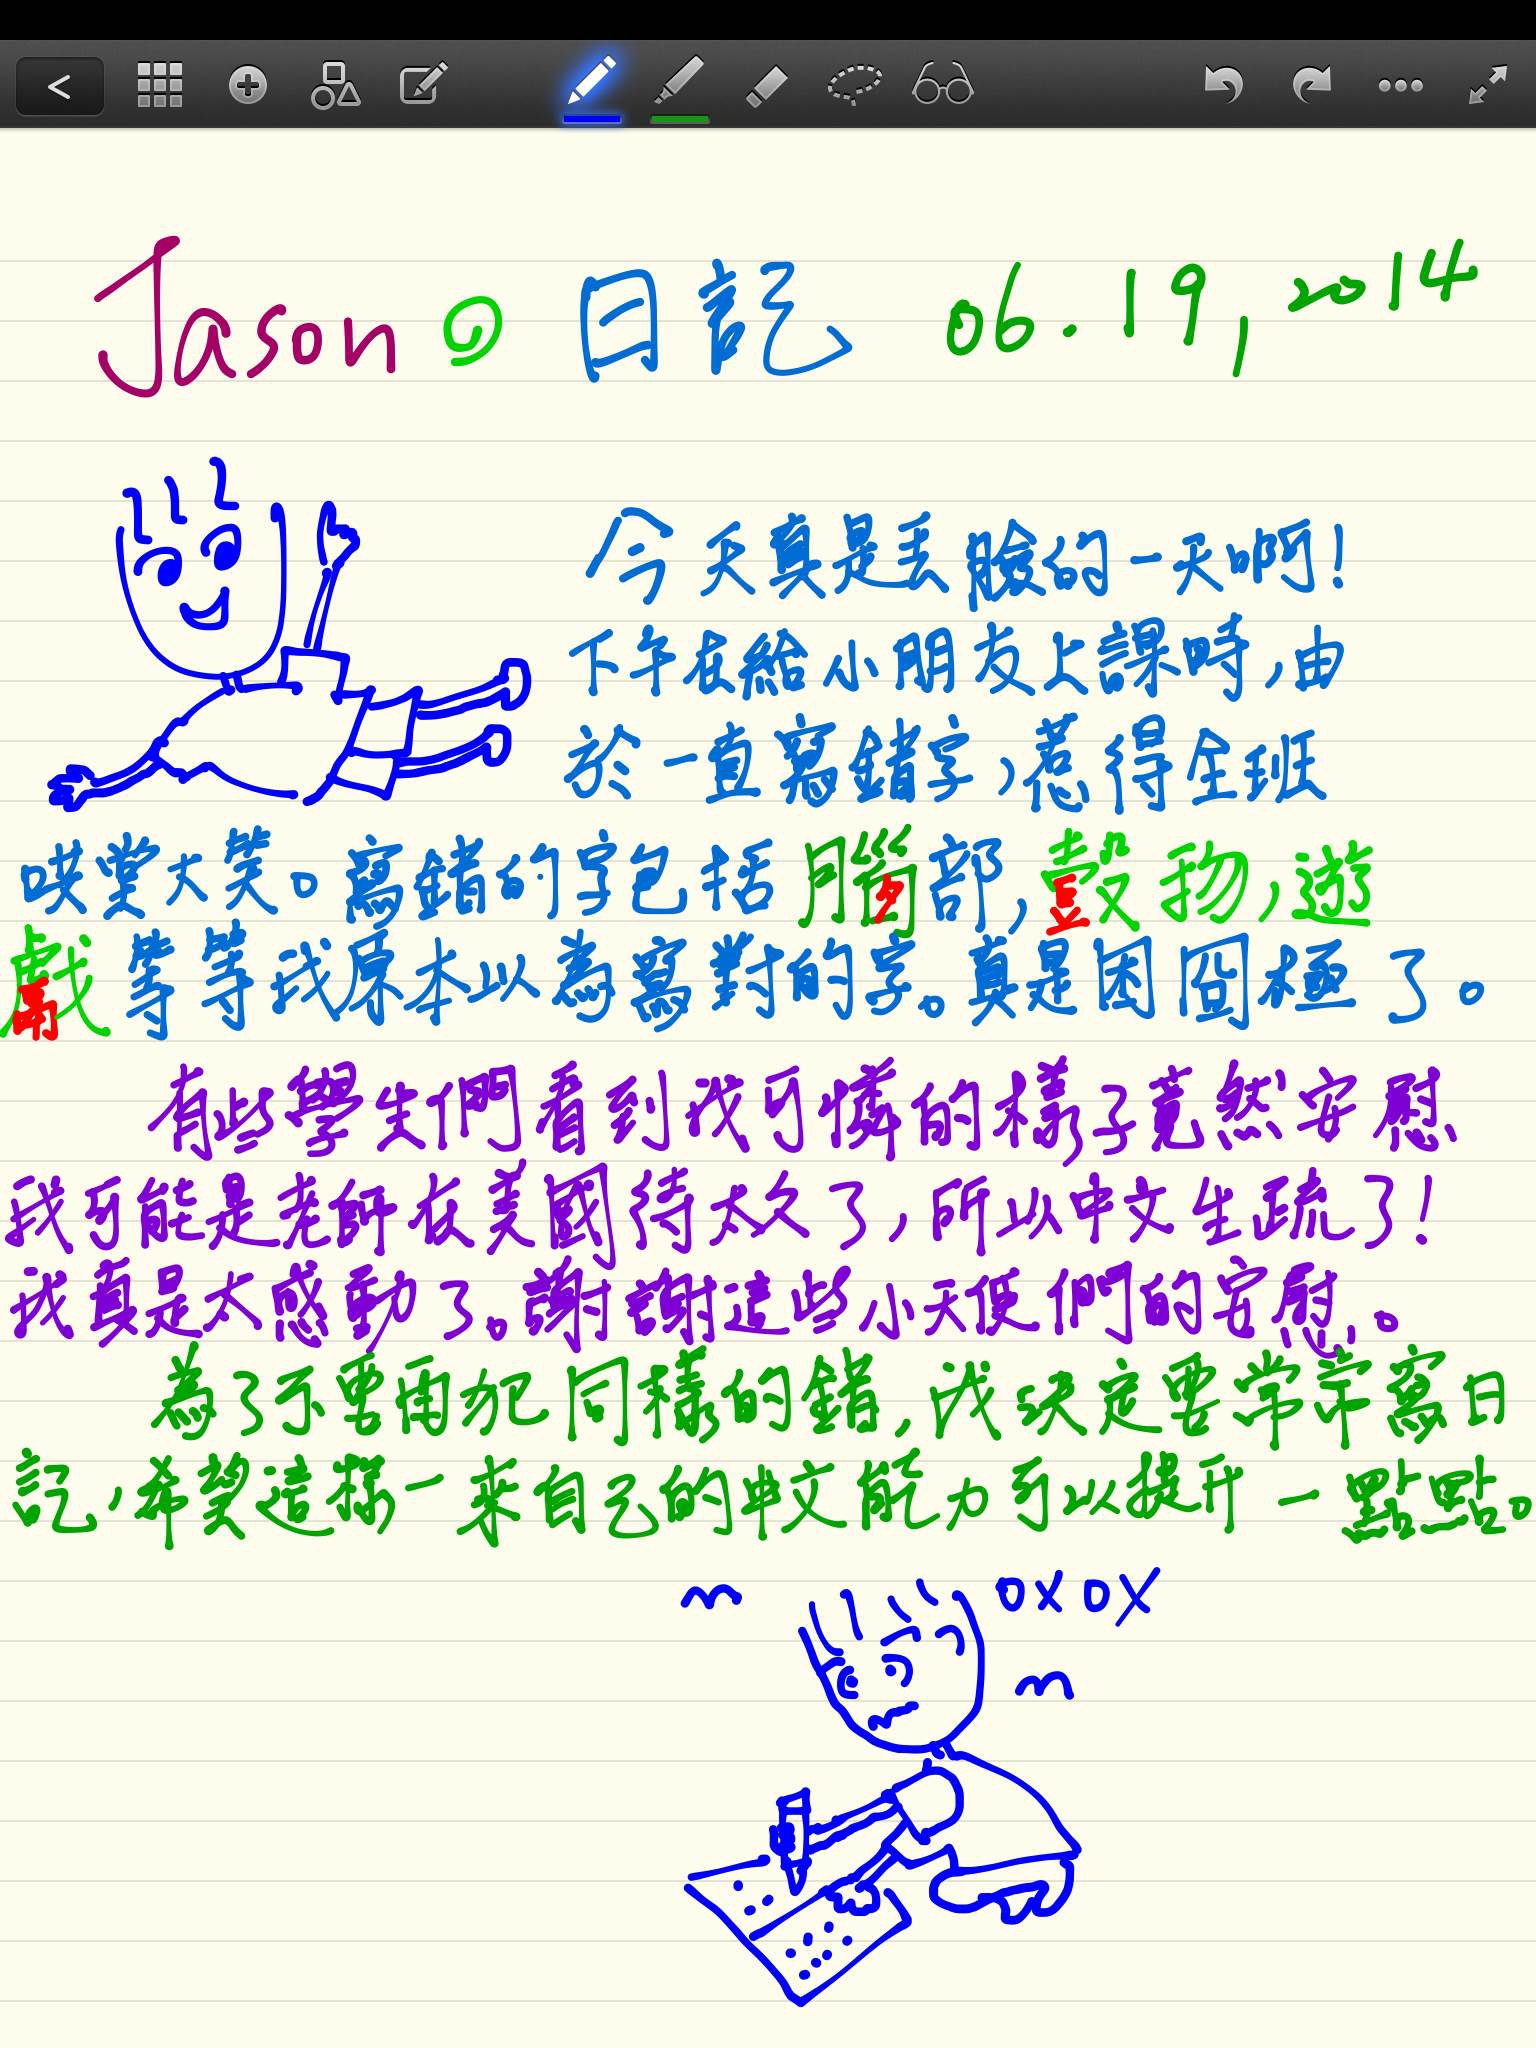 Jason の 日記 06.19, 2014
今天真是丟臉的一天啊!
下午在給小朋友上課時,由
於一直寫錯字,惹得全班
哄堂大笑。寫錯的字包括 腦部,穀物,遊
戲等等我原本以為寫對的字。真是困囧極了。
有些學生們看到我可憐的樣子竟然安慰
我可能是老師在美國待太久了,所以中文生疏了!
我真是太感動了。謝謝這些小天使們的安慰。
為了不要再犯同樣的錯,我決定要常常寫日
記,希望這樣一來自己的中文能力可以提升一點點。
OXOX